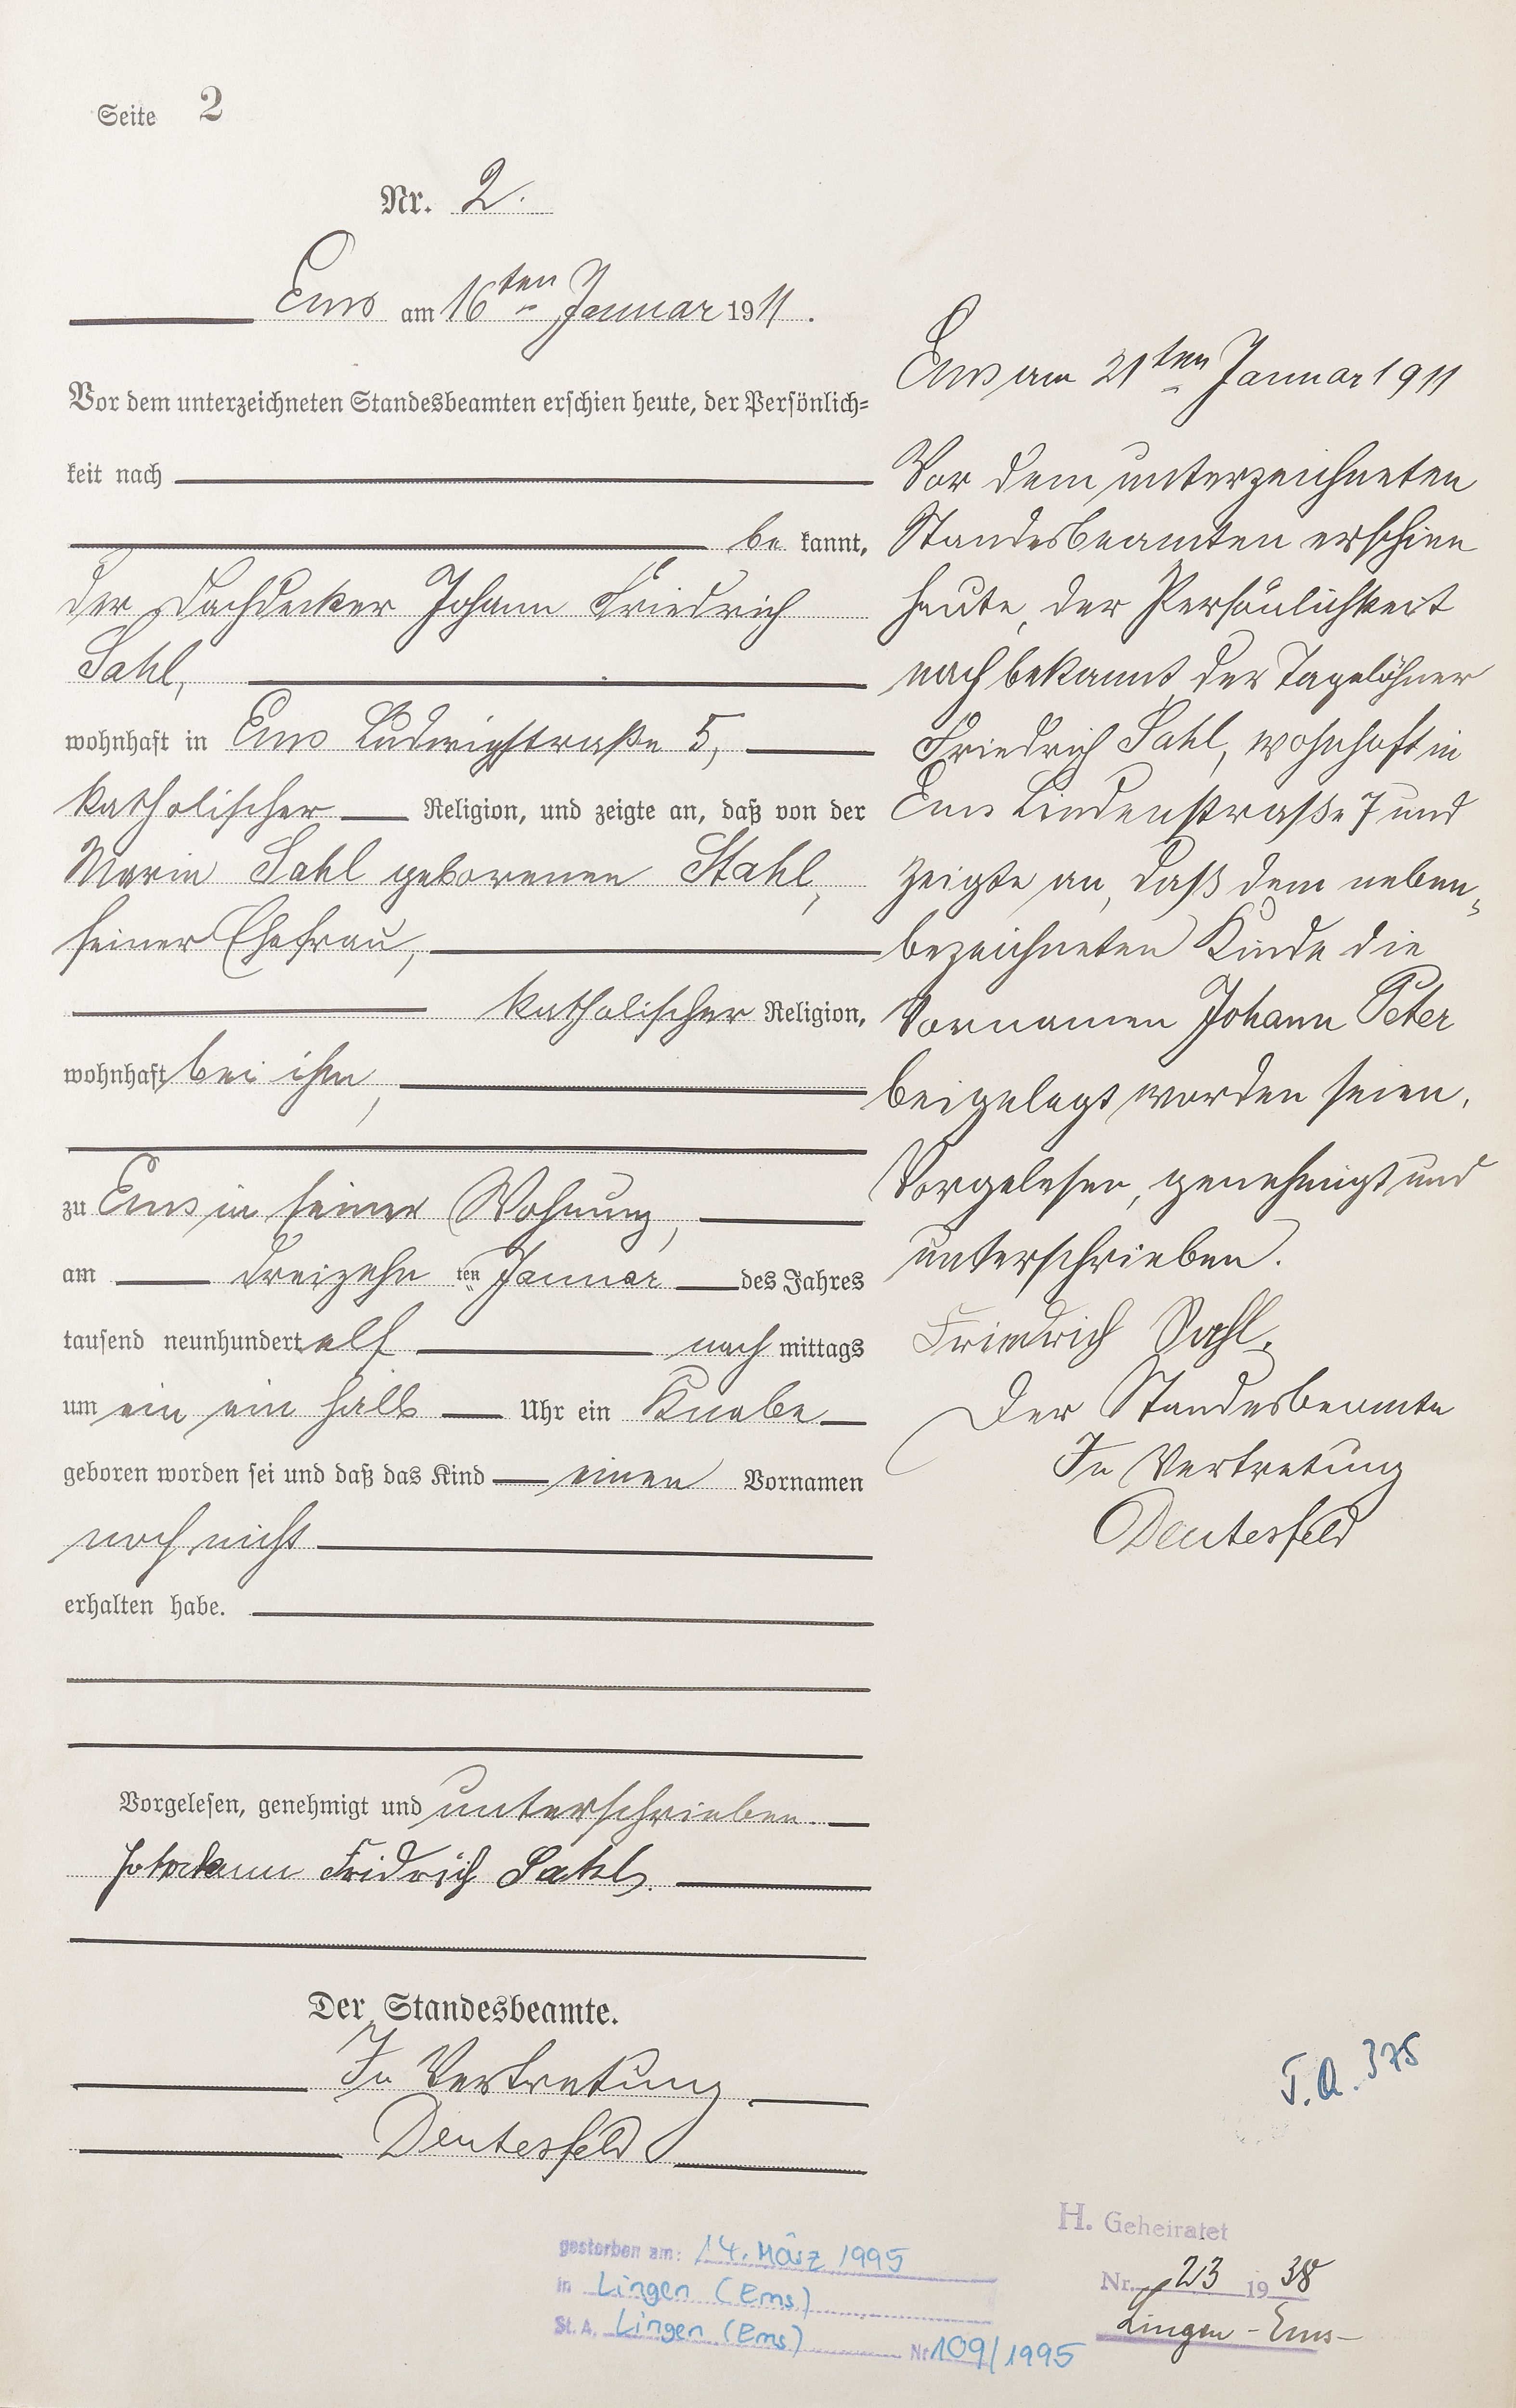 Seite 2
Nr. 2.
Ems am 16ten Januar 1911.
Vor dem unterzeichneten Standesbeamten erschien heute, der Persönlich=
keit nach
be kannt,
der Dachdecker Johann Friedrich
Sahl,
wohnhaft in Ems Ludwigstraße 5,
katholischer Religion, und zeigte an, daß von der
Marie Sahl geborenen Stahl,
seiner Ehefrau,
katholischer Religion,
wohnhaft bei ihm,
zu Ems in seiner Wohnung,
am dreizehn ten Januar des Jahres
tausend neunhundert elf nach mittags
um ein ein halb Uhr ein Knabe
geboren worden sei und daß das Kind einen Vornamen
noch nicht
erhalten habe.
Vorgelesen, genehmigt und unterschrieben.
Fridrich Sahl.
Der Standesbeamte.
In Vertretung
Deutesfeld
Ems am 21ten Januar 1911
Vor dem unterzeichneten
Standesbeamten erschien
heute, der Persönlichkeit
nach bekannt der Tagelöhner
Friedrich Sahl, wohnhaft in
Ems Lindenstraße 7 und
zeigte an, daß dem neben=
bezeichneten Kinde die
Vornamen Johann Peter
beigelegt worden seien.
Vorgelesen, genehmigt und
unterschrieben.
Friedrich Sahl.
Der Standesbeamte
In Vertretung
Deutesfeld
375
H. Geheiratet
Nr. 23 1938
Lingen-Ems-
gestorben am: 14. März 1995
in Lingen (Ems)
St. A. Lingen (Ems) Nr 109/1995